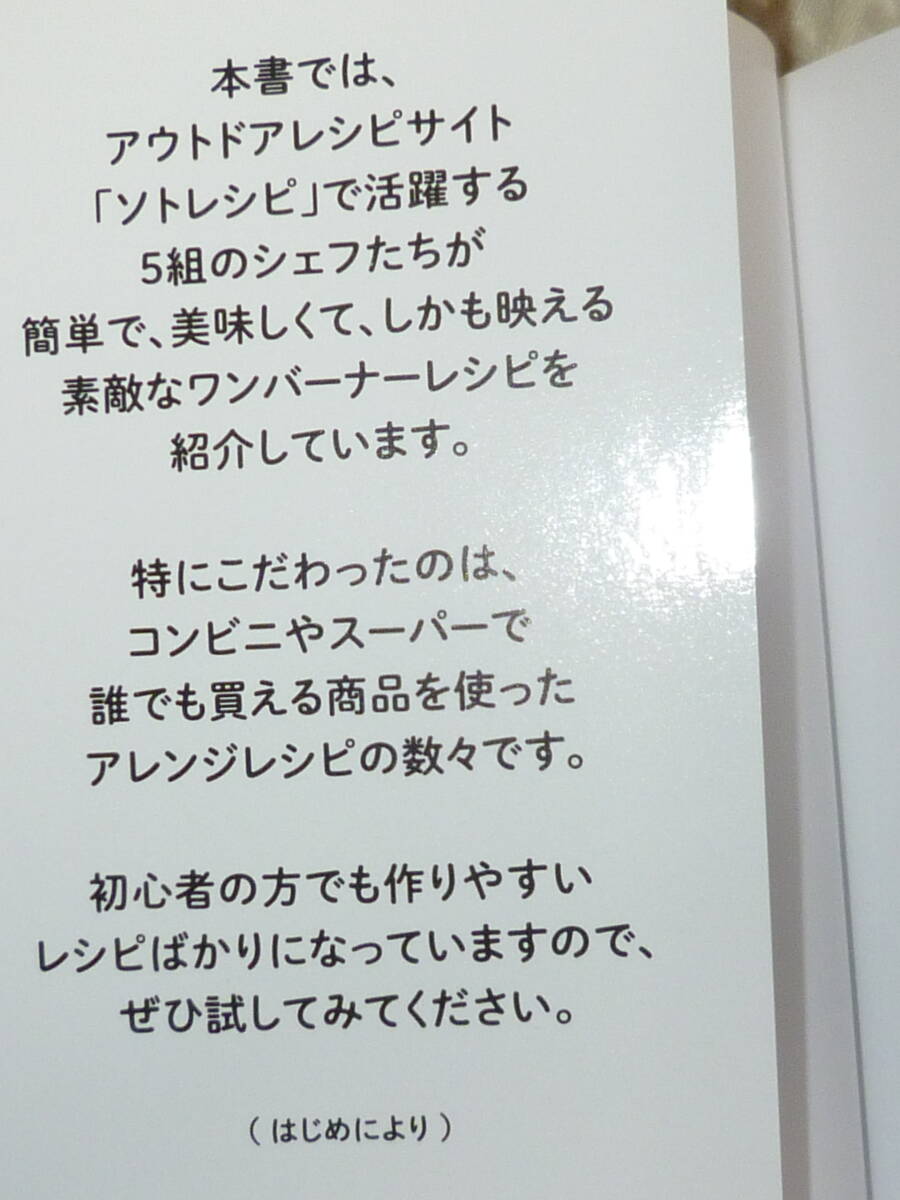 本書では、
アウトドアレシピサイト
「ソトレシピ」で活躍する
5組のシェフたちが
簡単で、美味しくて、しかも映える
素敵なワンバーナーレシピを
紹介しています。
特にこだわったのは、
コンビニやスーパーで
誰でも買える商品を使った
アレンジレシピの数々です。
初心者の方でも作りやすい
レシピばかりになっていますので、
ぜひ試してみてください。
(はじめにより)